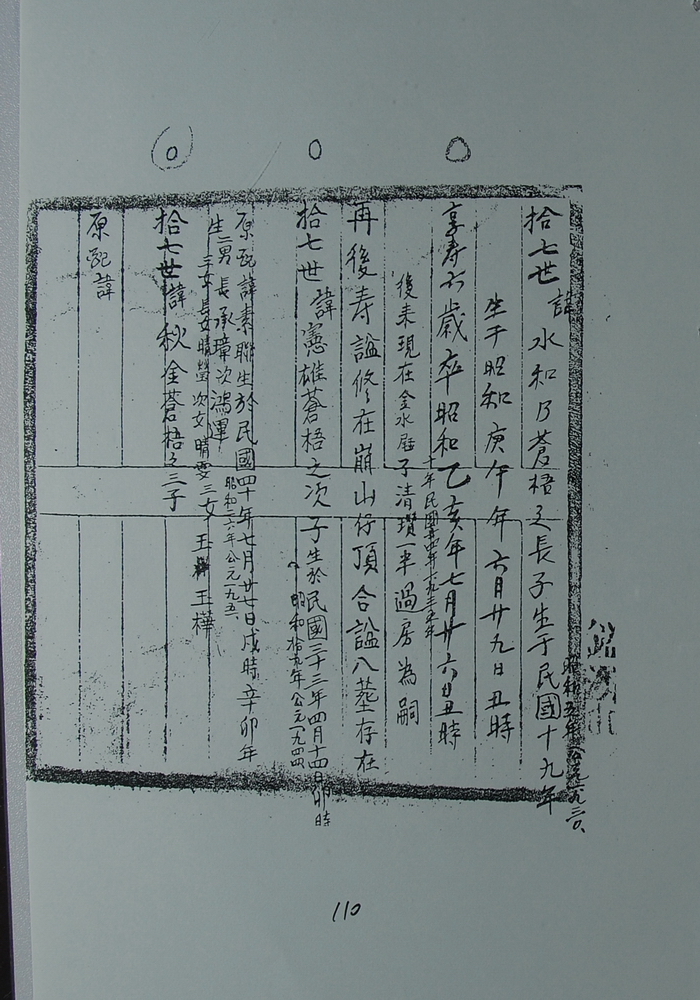 拾七世 諱 水和乃蒼梧之長子生于民國十九年
昭和五年 公元一九三〇、
生于昭和庚午年六月廿九日丑時
享寿六歲卒昭和乙亥年七月廿六日丑時
十年民國廿四年一九三五年
後来現在金水 子清瓚一半過房為嗣
再後寿諡修在崩山仔頂合諡八墓存在
拾七世 諱憲雄蒼梧之次子生於民國三十三年四月十四日卯時
昭和拾九年公元一九四四
原配諱素聯生於民國四十年七月廿廿日戍時辛卯年
昭和二六年公元一九五一
生二男 長承璋次鴻運
三女 長女晴瑩次女晴雯三女玉 玉樺
拾七世 諱 秋金蒼梧之三子
原配諱
110